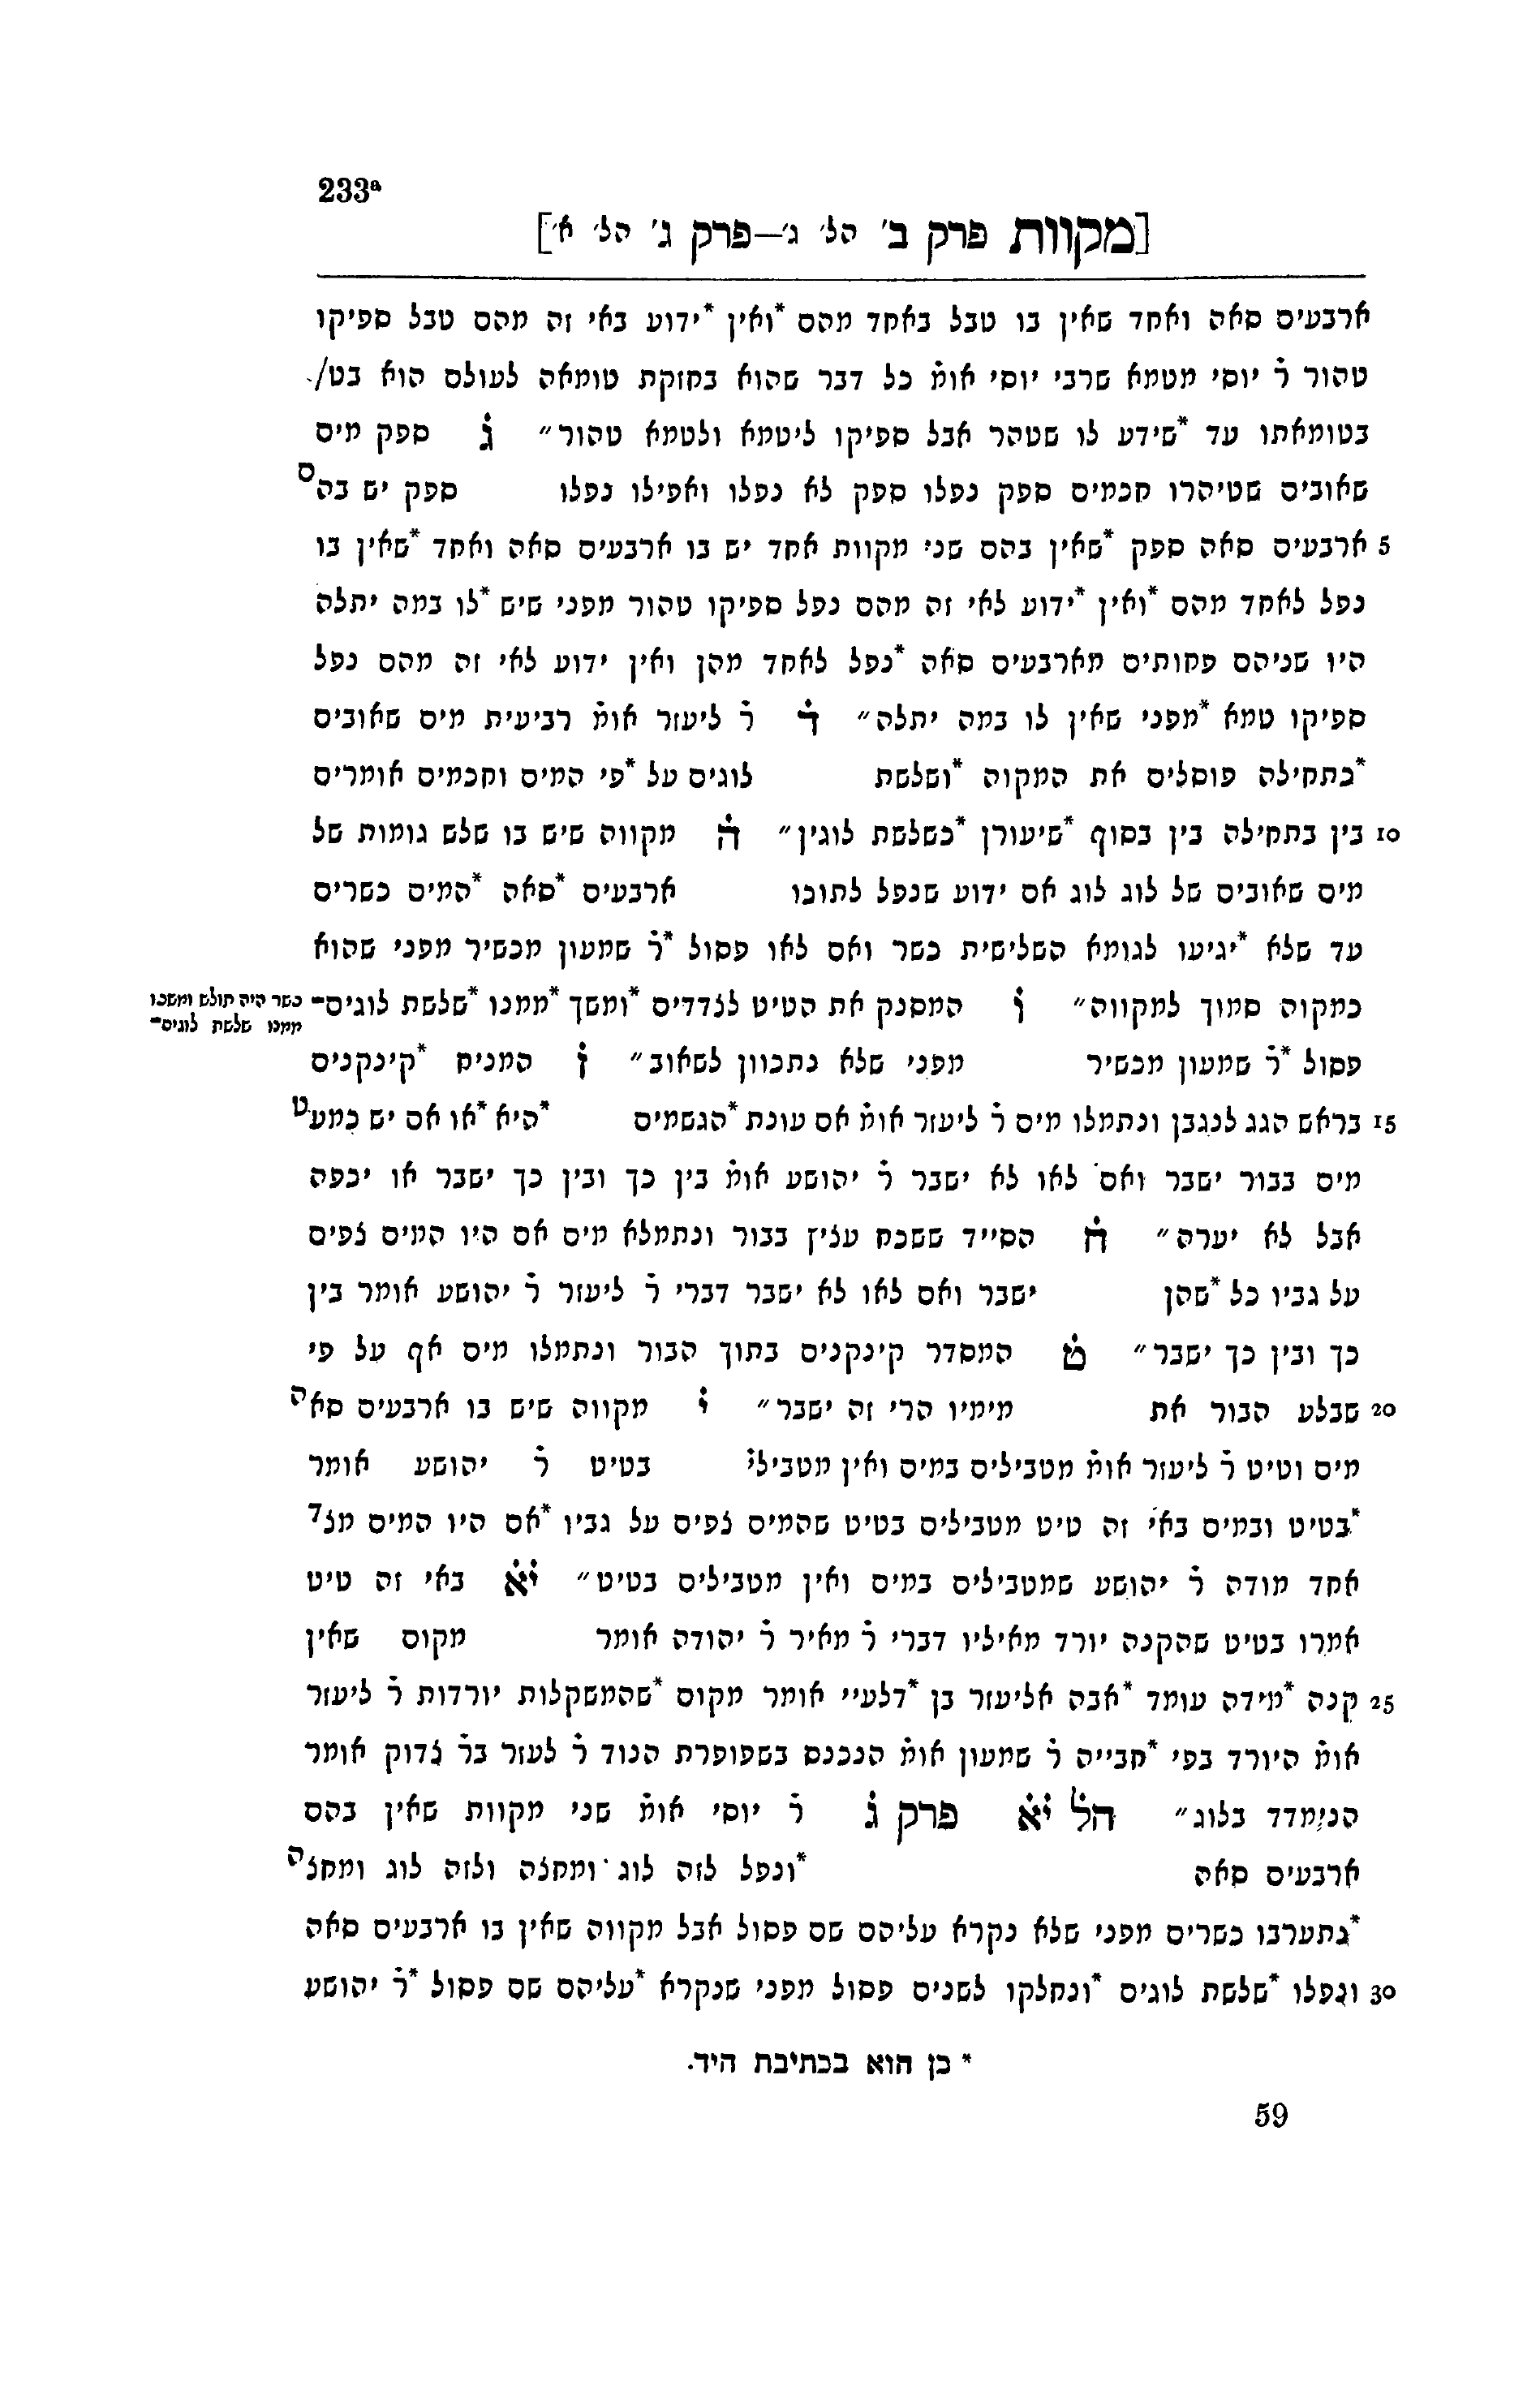 233ª
[מקוות פרק ב׳ הל׳ ג׳—פרק ג׳ הל׳ א׳]
ארבעים סאה ואחד שאין בו טבל באחד מהם *ואין *ידוע באי זה מהם טבל ספיקו
טהור ר̇ יוסי מטמא שרבי יוסי אומ̇ כל דבר שהוא בחזקת טומאה לעולם הוא בט/
בטומאתו עד *שידע לו שטהר אבל ספיקו ליטמא ולטמא טהור״ ג̇ ספק מים
שאובים שטיהרו חכמים ספק נפלו ספק לא נפלו ואפילו נפלו ספק יש בהם
5 ארבעים סאה ספק *שאין בהם שני מקוות אחד יש בו ארבעים סאה ואחד *שאין בו
נפל לאחד מהם *ואין *ידוע לאי זה מהם נפל ספיקו טהור מפני שיש *לו במה יתלה
היו שניהם פחותים מארבעים סאה *נפל לאחד מהן ואין ידוע לאי זה מהם נפל
ספיקו טמא *מפני שאין לו במה יתלה״ ד̇ ר̇ ליעזר אומ̇ רביעית מים שאובים
*בתחילה פוסלים את המקוה *ושלשת לוגים על *פי המים וחכמים אומרים
10 בין בתחילה בין בסוף *שיעורן *כשלשת לוגין״ ה̇ מקווה שיש בו שלש גומות של
מים שאובים של לוג לוג אם ידוע שנפל לתוכו ארבעים *סאה *המים כשרים
עד שלא *יגיעו לגומא השלישית כשר ואם לאו פסול *ר̇ שמעון מכשיר מפני שהוא
כמקוה סמוך למקווה״ ו̇ המסנק את הטיט לצדדים *ומשך *ממנו *שלשת לוגים־
כשר היה תולש ומשכו
ממנו שלשת לוגים־
פסול *ר̇ שמעון מכשיר מפני שלא נתכוון לשאוב״ ז̇ המניח *קינקנים
15 בראש הגג לנגבן ונתמלו מים ר̇ ליעזר אומ̇ אם עונת *הגשמים *היא *או אם יש כמעט
מים בבור ישבר ואם לאו לא ישבר ר̇ יהושע אומ̇ בין כך ובין כך ישבר או יכפה
אבל לא יערה״ ח̇ הסייד ששכח עציץ בבור ונתמלא מים אם היו המים צפים
על גביו כל *שהן ישבר ואם לאו לא ישבר דברי ר̇ ליעזר ר̇ יהושע אומר בין
כך ובין כך ישבר״ ט̇ המסדר קינקנים בתוך הבור ונתמלו מים אף על פי
20 שבלע הבור את מימיו הרי זה ישבר״ י̇ מקווה שיש בו ארבעים סאה
מים וטיט ר̇ ליעזר אומ̇ מטבילים במים ואין מטבילי̇ בטיט ר̇ יהושע אומר
*בטיט ובמים באי זה טיט מטבילים בטיט שהמים צפים על גביו *אם היו המים מצד
אחד מודה ר̇ יהושע שמטבילים במים ואין מטבילים בטיט״ י̇א̇ באי זה טיט
אמרו בטיט שהקנה יורד מאיליו דברי ר̇ מאיר ר̇ יהודה אומר מקום שאין
25 קנה *מידה עומד *אבה אליעזר בן *דלעיי אומר מקום *שהמשקלות יורדות ר̇ ליעזר
אומ̇ היורד בפי *חבייה ר̇ שמעון אומ̇ הנכנס בשפופרת הנוד ר̇ לעזר בר̇ צדוק אומר
הנימדד בלוג״ הל̇ י̇א̇ פרק ג̇ ר̇ יוסי אומ̇ שני מקוות שאין בהם
ארבעים סאה *ונפל לזה לוג ומחצה ולזה לוג ומחצה
*נתערבו כשרים מפני שלא נקרא עליהם שם פסול אבל מקווה שאין בו ארבעים סאה
30 ונפלו *שלשת לוגים *ונחלקו לשנים פסול מפני שנקרא *עליהם שם פסול *ר̇ יהושע
* כן הוא בכתיבת היד.
59